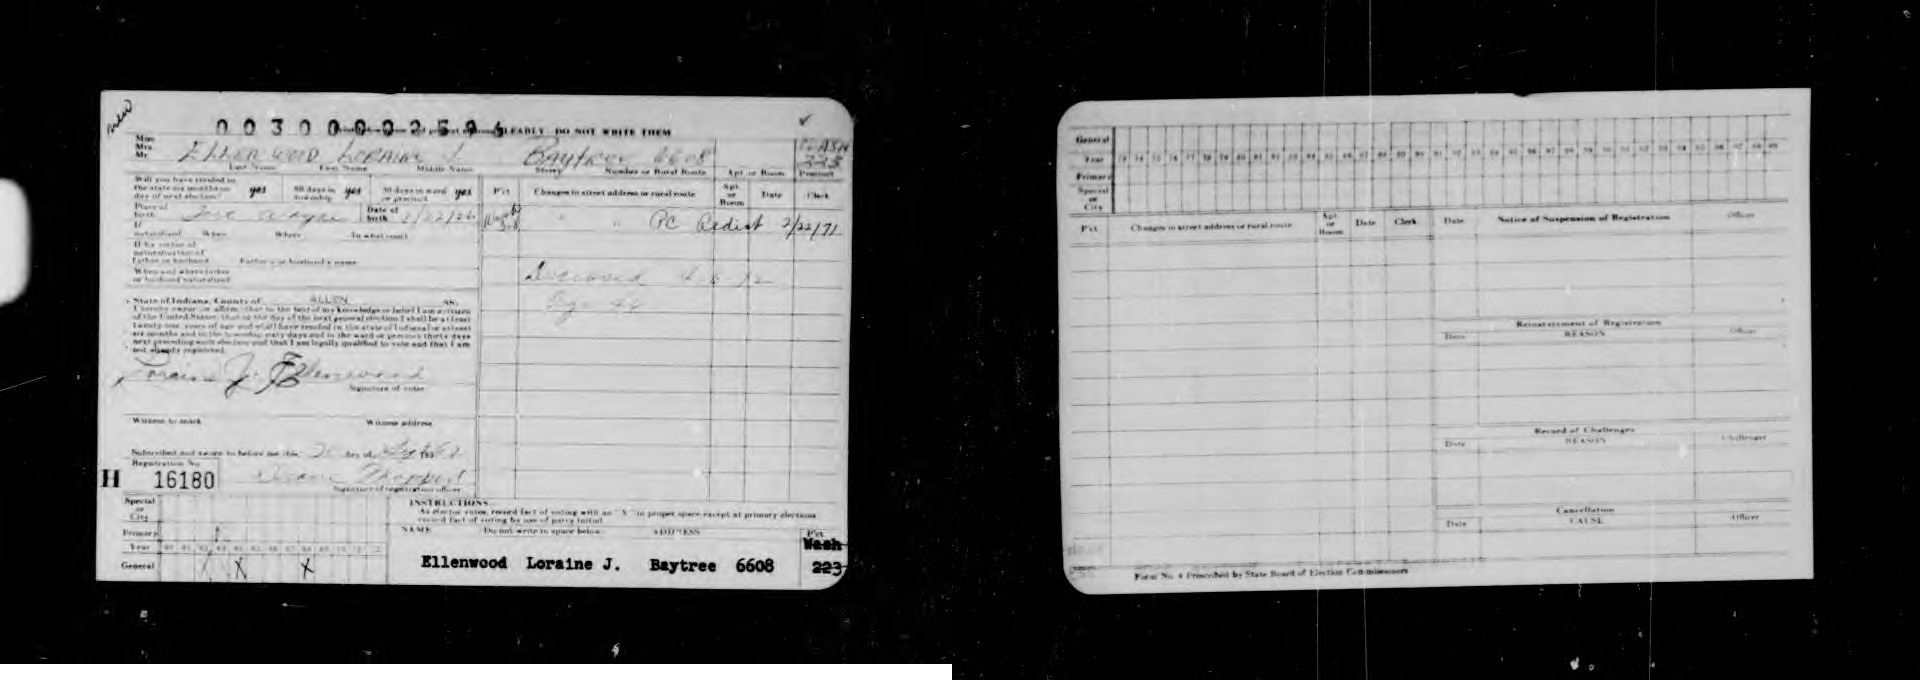 new
LEARLY DO NOT WRITE THEM
Miss
Mrs.
Mr. ELLENWOOD LORAINE J. BAYTREE 6608 WASH 223
Last Name First Name Middle Name Street Number or Rural Route Apt. or Room Precinct
Will you have resided in the state six months on day of next election? yes 60 days in township yes 30 days in ward or precinct yes
Pct Changes in street address or rural route Apt. or Room Date Clerk
Place of birth Fort Wayne Date of birth 2/22/26
" " PC Redist 2/22/71
If naturalized When Where In what court
If by virtue of naturalization of father or husband Father's or husband's name
When and where father or husband naturalized
Deceased
Age 46
State of Indiana, County of ALLEN SS:
I hereby swear (or affirm) that to the best of my knowledge or belief I am a citizen
of the United States; that on the day of the next general election I shall be at least
twenty-one years of age and shall have resided in the state of Indiana for at least
six months and in the township sixty days and in the ward or precinct thirty days
next preceding such election and that I am legally qualified to vote and that I am
not already registered.
Loraine J. Ellenwood
Signature of voter
Witness to mark Witness address
Subscribed and sworn to before me this day of
Registration No.
H 16180
Signature of registration officer
Special or City
Primary
Year
General X X
INSTRUCTIONS
As elector votes, record fact of voting with an "X" in proper space except at primary elections
record fact of voting by use of party initial
NAME Do not write in space below ADDRESS Pct
Ellenwood Loraine J. Baytree 6608 Wash 223
General
Year 73 74 75 76 77 78 79 80 81 82 83 84 85 86 87 88 89 90 91 92 93 94 95 96 97 98 99
Primary
Special or City
Pct Changes in street address or rural route Apt. or Room Date Clerk
Date Notice of Suspension of Registration Officer
Reinstatement of Registration
Date REASON Officer
Record of Challenges
Date REASON Challenger
Cancellation
Date CAUSE Officer
Form No. 4 Prescribed by State Board of Election Commissioners